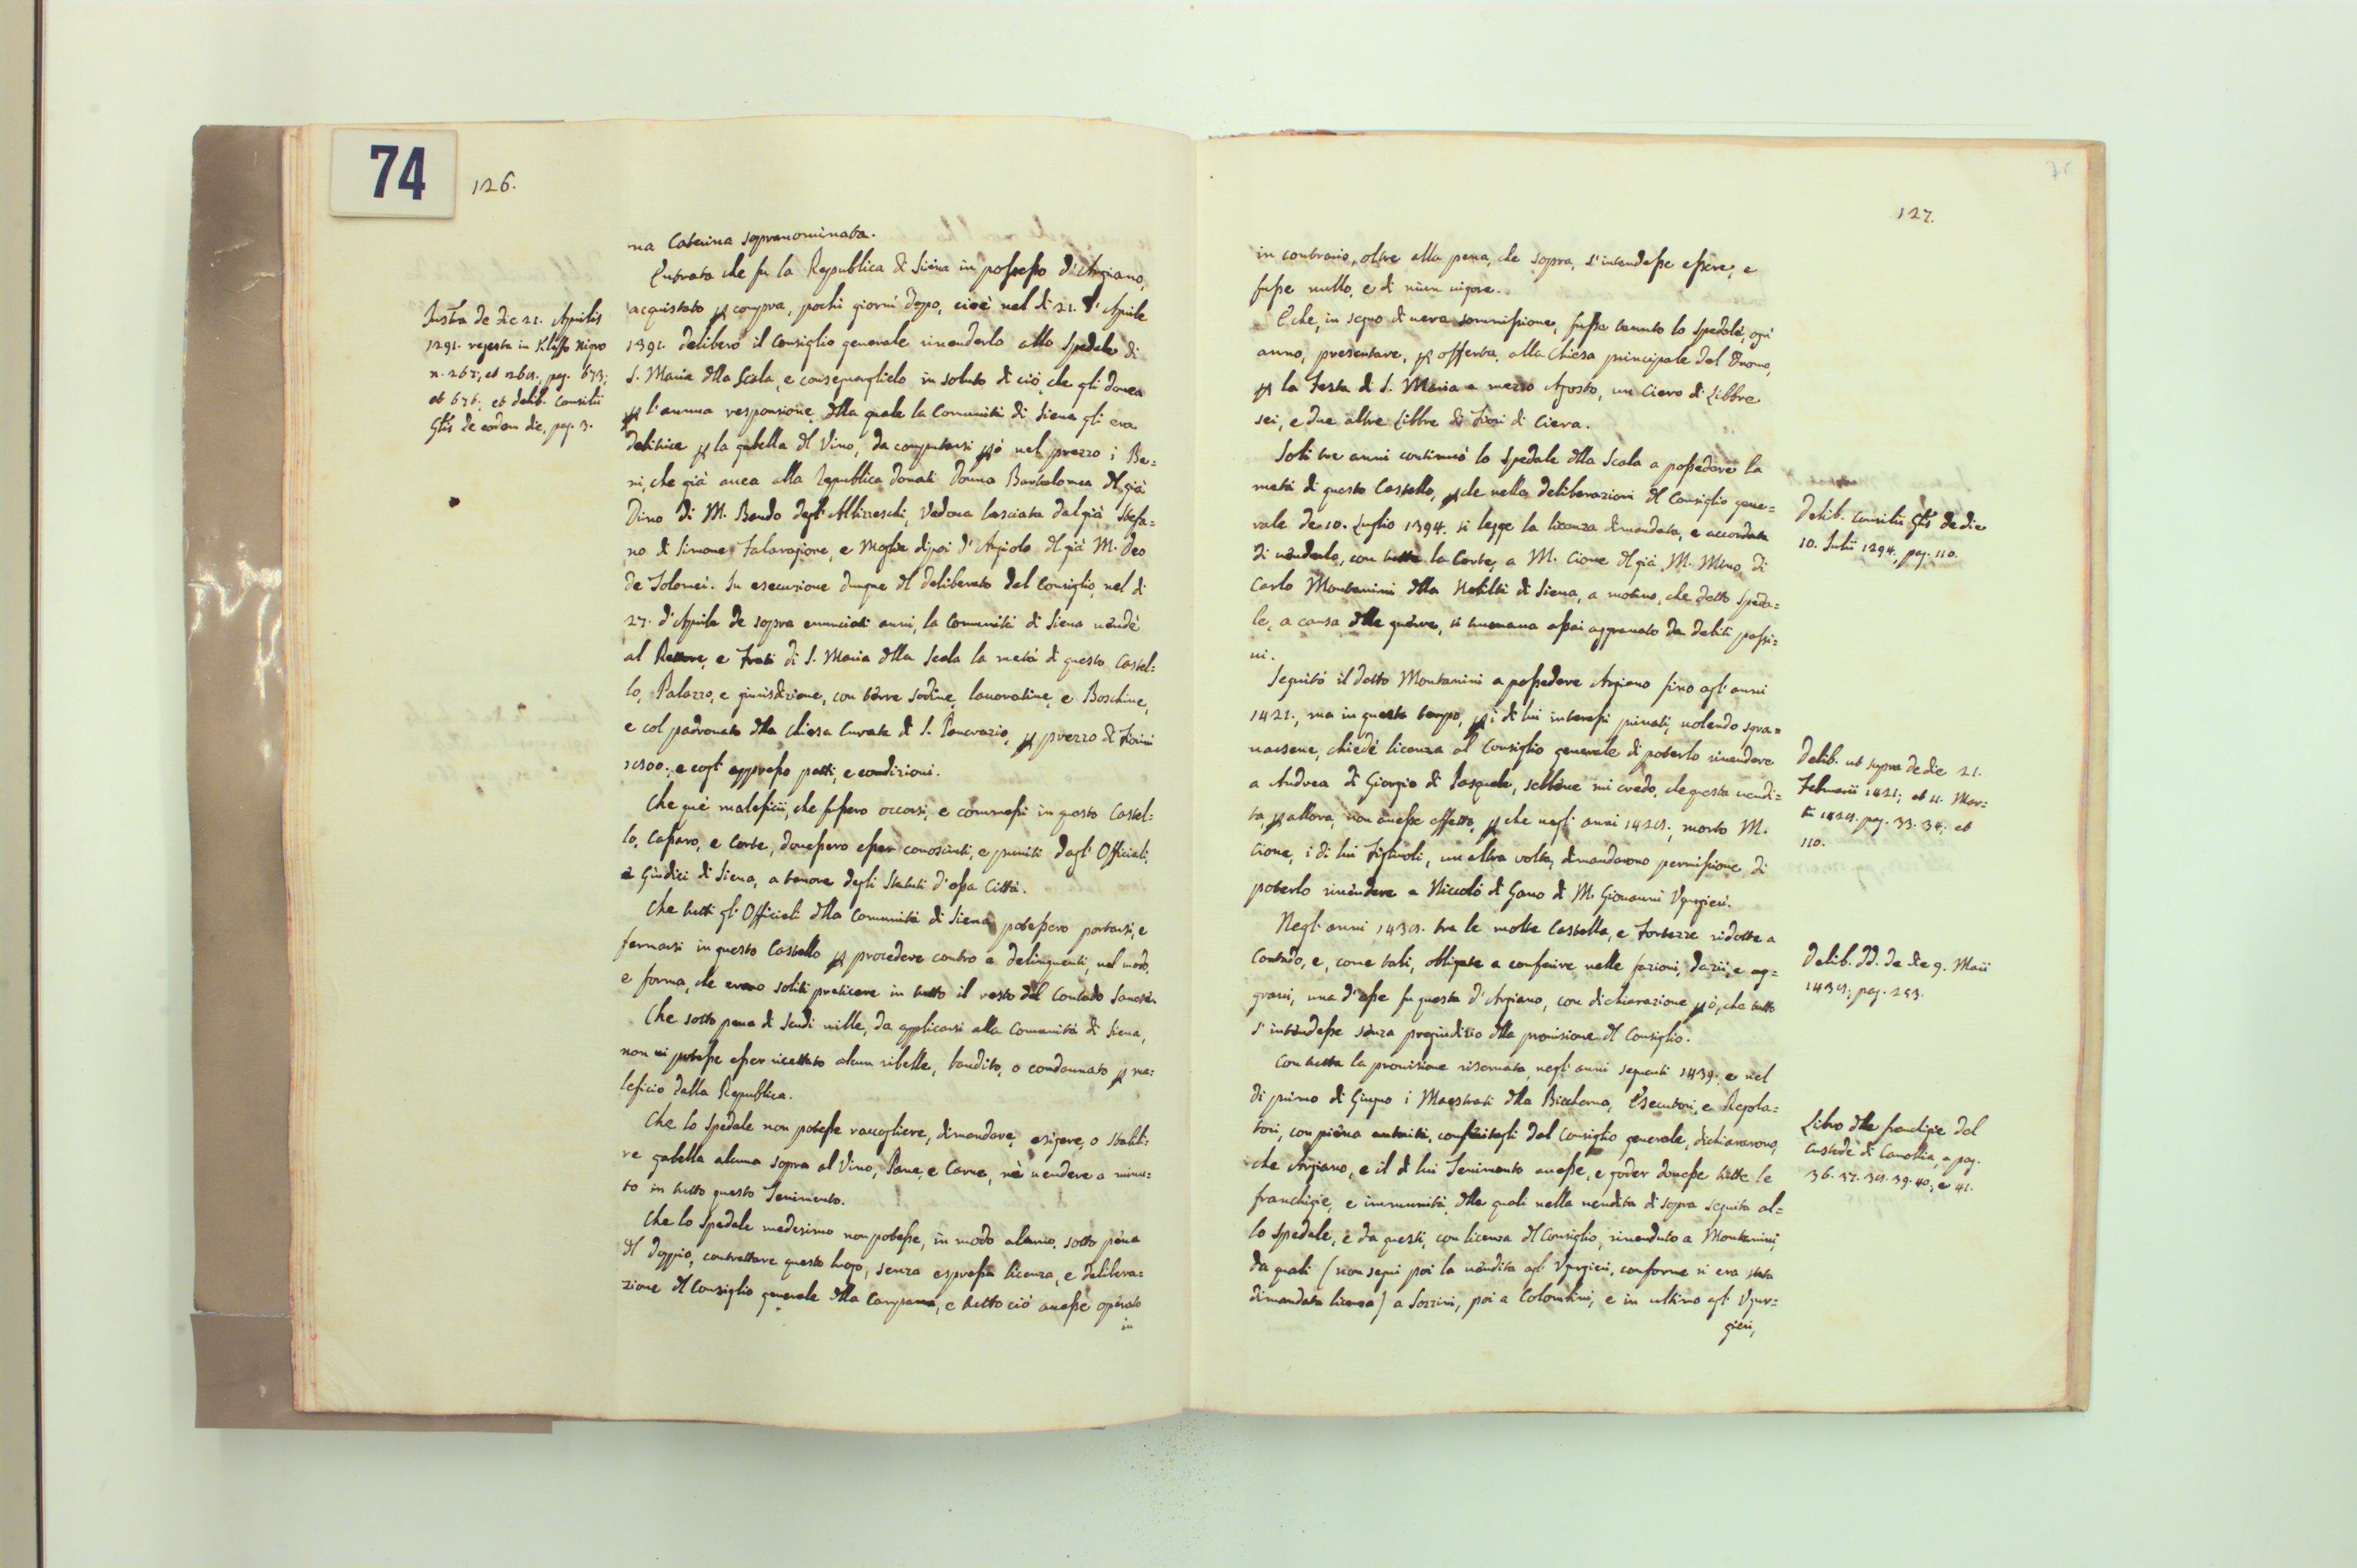 74
126.
na Caterina sopranominata.
Entrata che fu la Republica di Siena in possesso d'Argiano,
acquistato p compra, pochi giorni dopo, cioè nel dì 21. d'Aprile
1391. deliberò il Consiglio generale rivenderlo allo Spedale di
S. Maria dlla Scala, e consegnarglielo in soluto di ciò, che gli dovea
p l'annua responsione, dlla quale la Comunità di Siena gli era
debitrice p la gabella dl Vino, da computarsi pò nel prezzo i Be=
ni, che già avea alla Republica donati Donna Bartolomea dl già
Dino di M. Bando degl'Albizzeschi, Vedova lasciata dal già Stefa=
no di Simone Talavazione, e Moglie dipoi d'Agiolo dl già M. Deo
de Tolomei. In esecuzione dunque dl deliberato del Consiglio, nel dì
27. d'Aprile de sopra enunciati anni, la Comunità di Siena vendé
al Rettore, e Frati di S. Maria dlla Scala la metà di questo Castel=
lo, Palazzo, e giurisdizione, con terre sodive, lavorative, e Boschive,
e col padronato dlla Chiesa Curata di S. Pancrazio, p prezzo di Fiorini
e cogl'appresso patti, e condizioni.
Che que' maleficii, che fussero occorsi, e commessi in questo Castel=
lo, Cassaro, e Corte, dovessero esser conosciuti, e puniti dagl'Officiali,
e Giudici di Siena, a tenore degli Statuti d'essa Città.
Che tutti gl'Officiali dlla Comunità di Siena potessero portarsi, e
fermarsi in questo Castello p procedere contro a delinquenti, nel modo,
e forma, che erano soliti praticare in tutto il resto del Contado Sanese.
Che sotto pena di Scudi mille, da applicarsi alla Comunità di Siena,
non vi potesse esser ricettato alcun ribelle, bandito, o condannato p ma=
leficio dalla Republica.
Che lo Spedale non potesse raccogliere, dimandare, esigere, o stabili=
re gabella alcuna sopra al Vino, Pane, e Carne, nè vendere a minu=
to in tutto questo Tenimento.
Che lo Spedale medesimo non potesse, in modo alcuno, sotto pena
dl doppio, contrattare questo luogo, senza espressa licenza, e delibera=
zione dl Consiglio generale dlla Campana, e tutto ciò avesse operato
in
de die 21. Aprilis
1291. regesta in Kleffo nigro
pag. 673;
et 676; et delib. Consilii
Glis de eodem die, pag. 3.
127.
in contrario, oltre alla pena, che sopra, s'intendesse essere, e
fusse nullo, e di niun vigore.
E che, in segno di vera sommissione, fusse tenuto lo Spedale, ogni
anno, presentare, p offerta, alla Chiesa principale del Duomo,
p la Festa di S. Maria a mezzo Agosto, un Ciero di Libbre
sei, e due altre Libbre di Fiori di Ciera.
Soli tre anni continuò lo Spedale dlla Scala a possedere la
metà di questo Castello, pche nelle deliberazioni dl Consiglio gene=
rale de 10. Luglio 1394. si legge la licenza dimandata, e accordata
di venderlo, con tutta la Corte, a M. Cione dl già M. Mino di
Carlo Montanini dlla Nobiltà di Siena, a motivo, che detto Speda=
le, a causa dlle guerre, si trovava assai aggravato da debiti passi=
vi.
Seguitò il detto Montanini a possedere Argiano fino agl'anni
1421., ma in questo tempo, p i di lui interessi privati, volendo sgra=
varsene, chiedé licenza al Consiglio generale di poterlo rivendere
a Andrea di Giorgio di Pasquale, sebbene mi credo, che questa vendi=
ta, p allora, non avesse effetto, p che negl'anni morto M.
Cione, i di lui Figliuoli, un'altra volta, dimandarono permissione di
poterlo rivendere a Niccolò di Gano di M. Giovanni Vgurgieri.
Negl'anni tra le molte Castella, e Fortezze ridotte a
Contado, e, come tali, obligate a conferire nelle fazioni, dazii, e ag=
gravi, una d'esse fu questa d'Argiano, con dichiarazione pò, che tutto
s'intendesse senza pregiudizio dlla provisione dl Consiglio.
Con tutta la provisione riservata, negl'anni seguenti 1439. e nel
dì primo di Giugno i Maestrati dlla Biccherna, Esecutori, e Regola=
tori, con piena autorità, conferitagli dal Consiglio generale, dichiararono,
che Argiano, e il di lui Tenimento avesse, e goder dovesse tutte le
franchigie, e immunità, dlle quali nella vendita di sopra seguita al=
lo Spedale, e da questi, con licenza dl Consiglio, rivenduto a Montanini,
da quali (non seguì poi la vendita agl'Vgurgieri, conforme si era stata
dimandata licenza) a Sozzini, poi a Colombini, e in ultimo agl'Vgur=
gieri,
Delib. Consilii Glis de die
10. Julii 1294., pag. 110.
Delib. ut supra de die 21.
Februarii 1421; et 11. Mar=
tii pag. 33. 34; et
110.
Delib. dd. de die 9. Maii
pag. 253.
Libro dlle franchigie del
Custode di Camollia, a pag.
36. 37. 38. 39. 40., e 41.